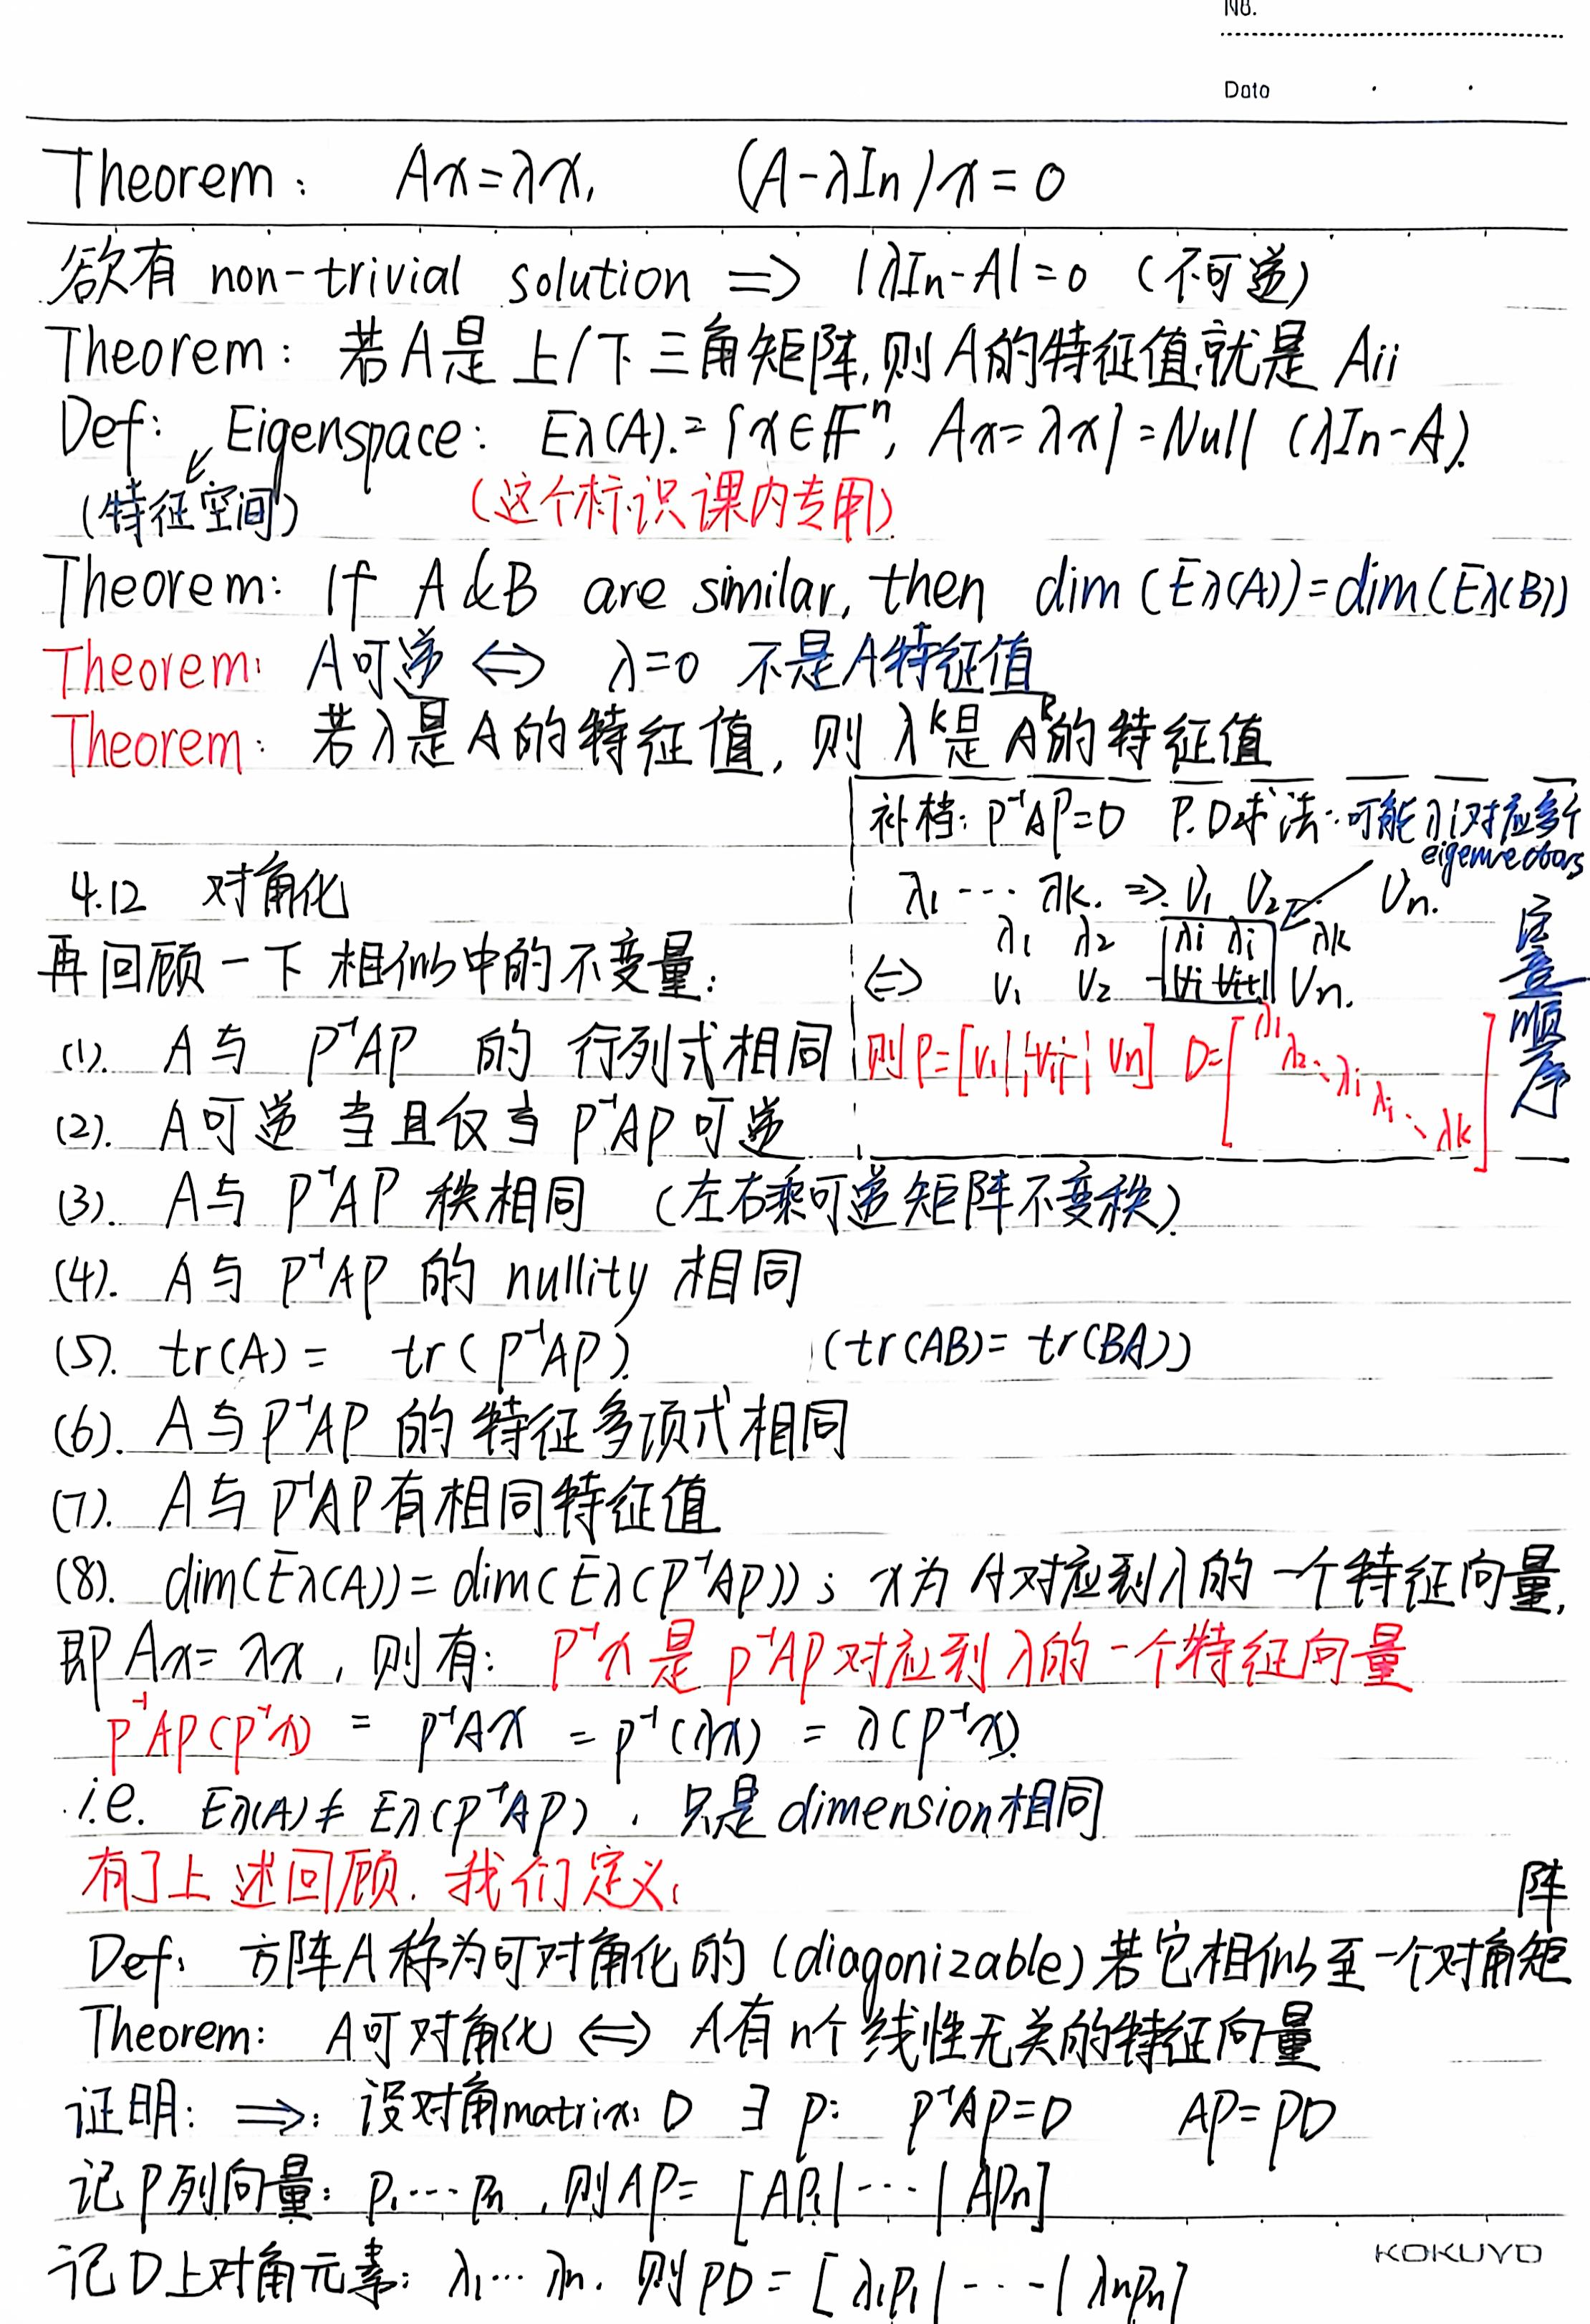 No.
Date
Theorem: Ax=λx, (A-λIn)x=0
欲有 non-trivial solution ⇒ |λIn-A|=0 (不可逆)
Theorem: 若A是上/下三角矩阵,则A的特征值就是Aii
Def: Eigenspace: Eλ(A).={x∈𝔽ⁿ, Ax=λx}=Null (λIn-A).
(特征空间) (这个标识课内专用)
Theorem: If A&B are similar, then dim(Eλ(A))=dim(Eλ(B))
Theorem: A可逆 ⇔ λ=0 不是A特征值
Theorem: 若λ是A的特征值, 则λᵏ是Aᵏ的特征值
补档: P⁻¹AP=D P.D求法:可能λi对应多个
eigenvectors
λ1 ... λk. ⇒ V1 V2 Vn.
λ1 λ2 λi λi λk
⇔ V1 V2 Vi Vi+1 Vn.
则P=[V1|¦Vi¦|Vn] D=[λ1 λ2 ⋱ λi λi ⋱ λk]
注意顺序
4.12 对角化
再回顾一下相似中的不变量:
(1). A与 P⁻¹AP 的 行列式相同
(2). A可逆 当且仅当 P⁻¹AP可逆
(3). A与 P⁻¹AP 秩相同 (左右乘可逆矩阵不变秩)
(4). A与 P⁻¹AP 的 nullity 相同
(5). tr(A) = tr(P⁻¹AP). (tr(AB)= tr(BA))
(6). A与P⁻¹AP 的特征多项式相同
(7). A与P⁻¹AP有相同特征值
(8). dim(Eλ(A))=dim(Eλ(P⁻¹AP)); x为A对应到λ的一个特征向量,
即Ax=λx, 则有: P⁻¹x是P⁻¹AP对应到λ的一个特征向量
P⁻¹AP(P⁻¹x) = P⁻¹Ax = P⁻¹(λx) = λ(P⁻¹x).
i.e. Eλ(A)≠Eλ(P⁻¹AP). 只是dimension相同
有了上述回顾. 我们定义:
Def: 方阵A称为可对角化的(diagonizable)若它相似至一个对角矩阵
Theorem: A可对角化 ⇔ A有n个线性无关的特征向量
证明: ⇒: 设对角matrix: D ∃ P: P⁻¹AP=D AP=PD
记P列向量: P1...Pn ,则AP= [AP1|...|APn]
记D上对角元素: λ1...λn. 则PD=[λ1P1|...|λnPn]
KOKUYO